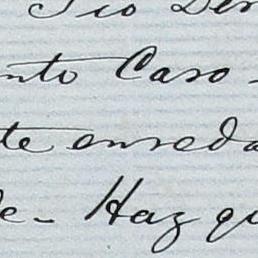 Tio Ber
nto Caro-
te enreda
de- Haz qu